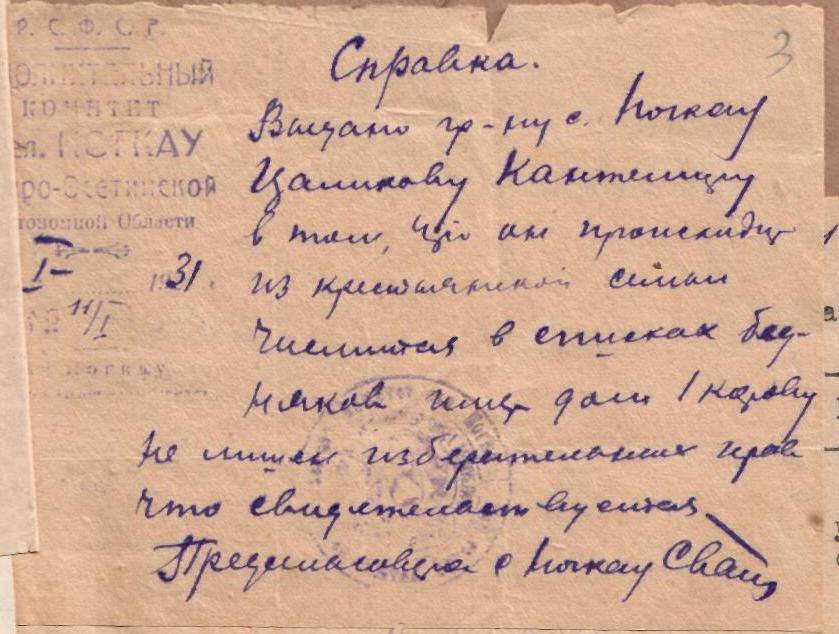 Р. С. Ф. С. Р.
ПОЛНИТЕЛЬНЫЙ
КОМИТЕТ
НОГКАУ
ро-Осетинской
тономной Области
I 1931.
11/I
Ногкау
3
Справка.
Выдано гр-ну с. Ногкау
Цаликову
в том, что он происходит
из крестьянской семьи
числится в списках бед-
няков имеет дом 1 корову
не лишен избирательных прав
что свидетельствуется
с Ногкау